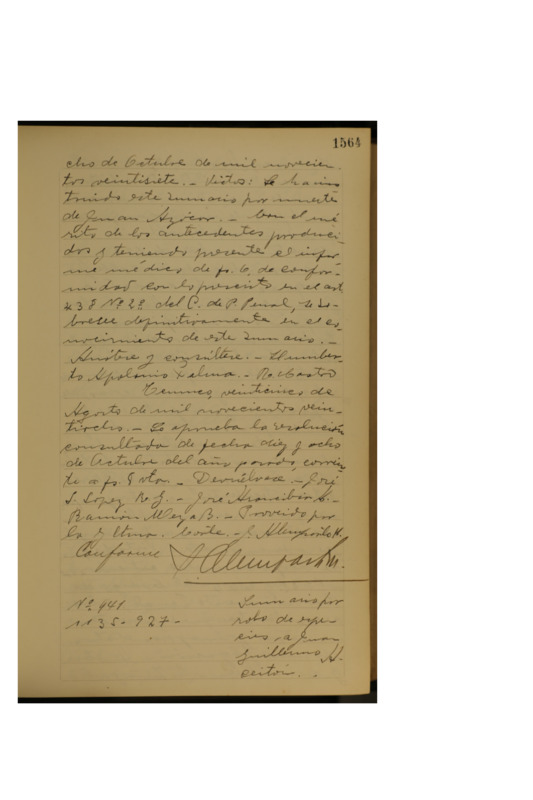 1564
cho de Octubre de mil novecien
tos veintisiete. - Vistos: Se ha ins
truido este sumario por muerte
de Juan Azócar. - Con el mé
rito de los antecedentes produci-
dos y teniendo presente el infor-
me médico de fs. 6, de confor-
midad con lo prescrito en el art
438 Nº 2º del C. de P. Penal, se so-
bresee definitivamente en el co
nocimiento de este sumario. -
Anótese y consúltese. - Humber-
to Apolonio - R. Castro
Temuco, veinticinco de
Agosto de mil novecientos vein-
tiocho. - Se aprueba la resolución
consultada de fecha diez y ocho
de Octubre del año pasado, corrien
te a fs. 8 vta. - Devuélvase. - José
S. López R. J. - José Arancibia A. -
Ramón Meza B. - Proveído por
la Iltma. Corte. -
Conforme
Nº 941
1135-927-
Sumario por
robo de espe-
cies a Juan
Guillermo